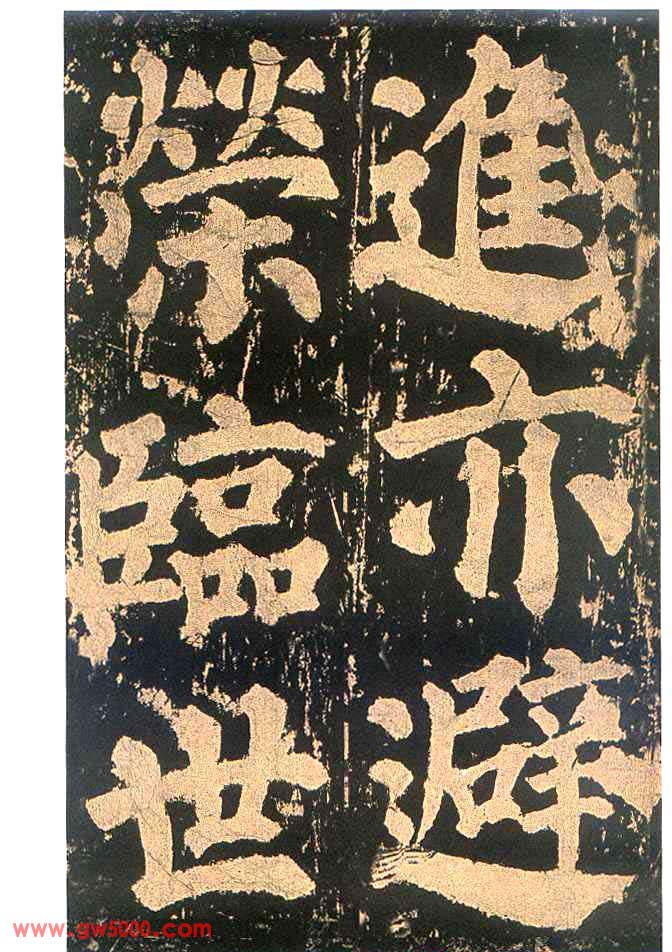 進亦避
榮臨世
www.gw5000.com